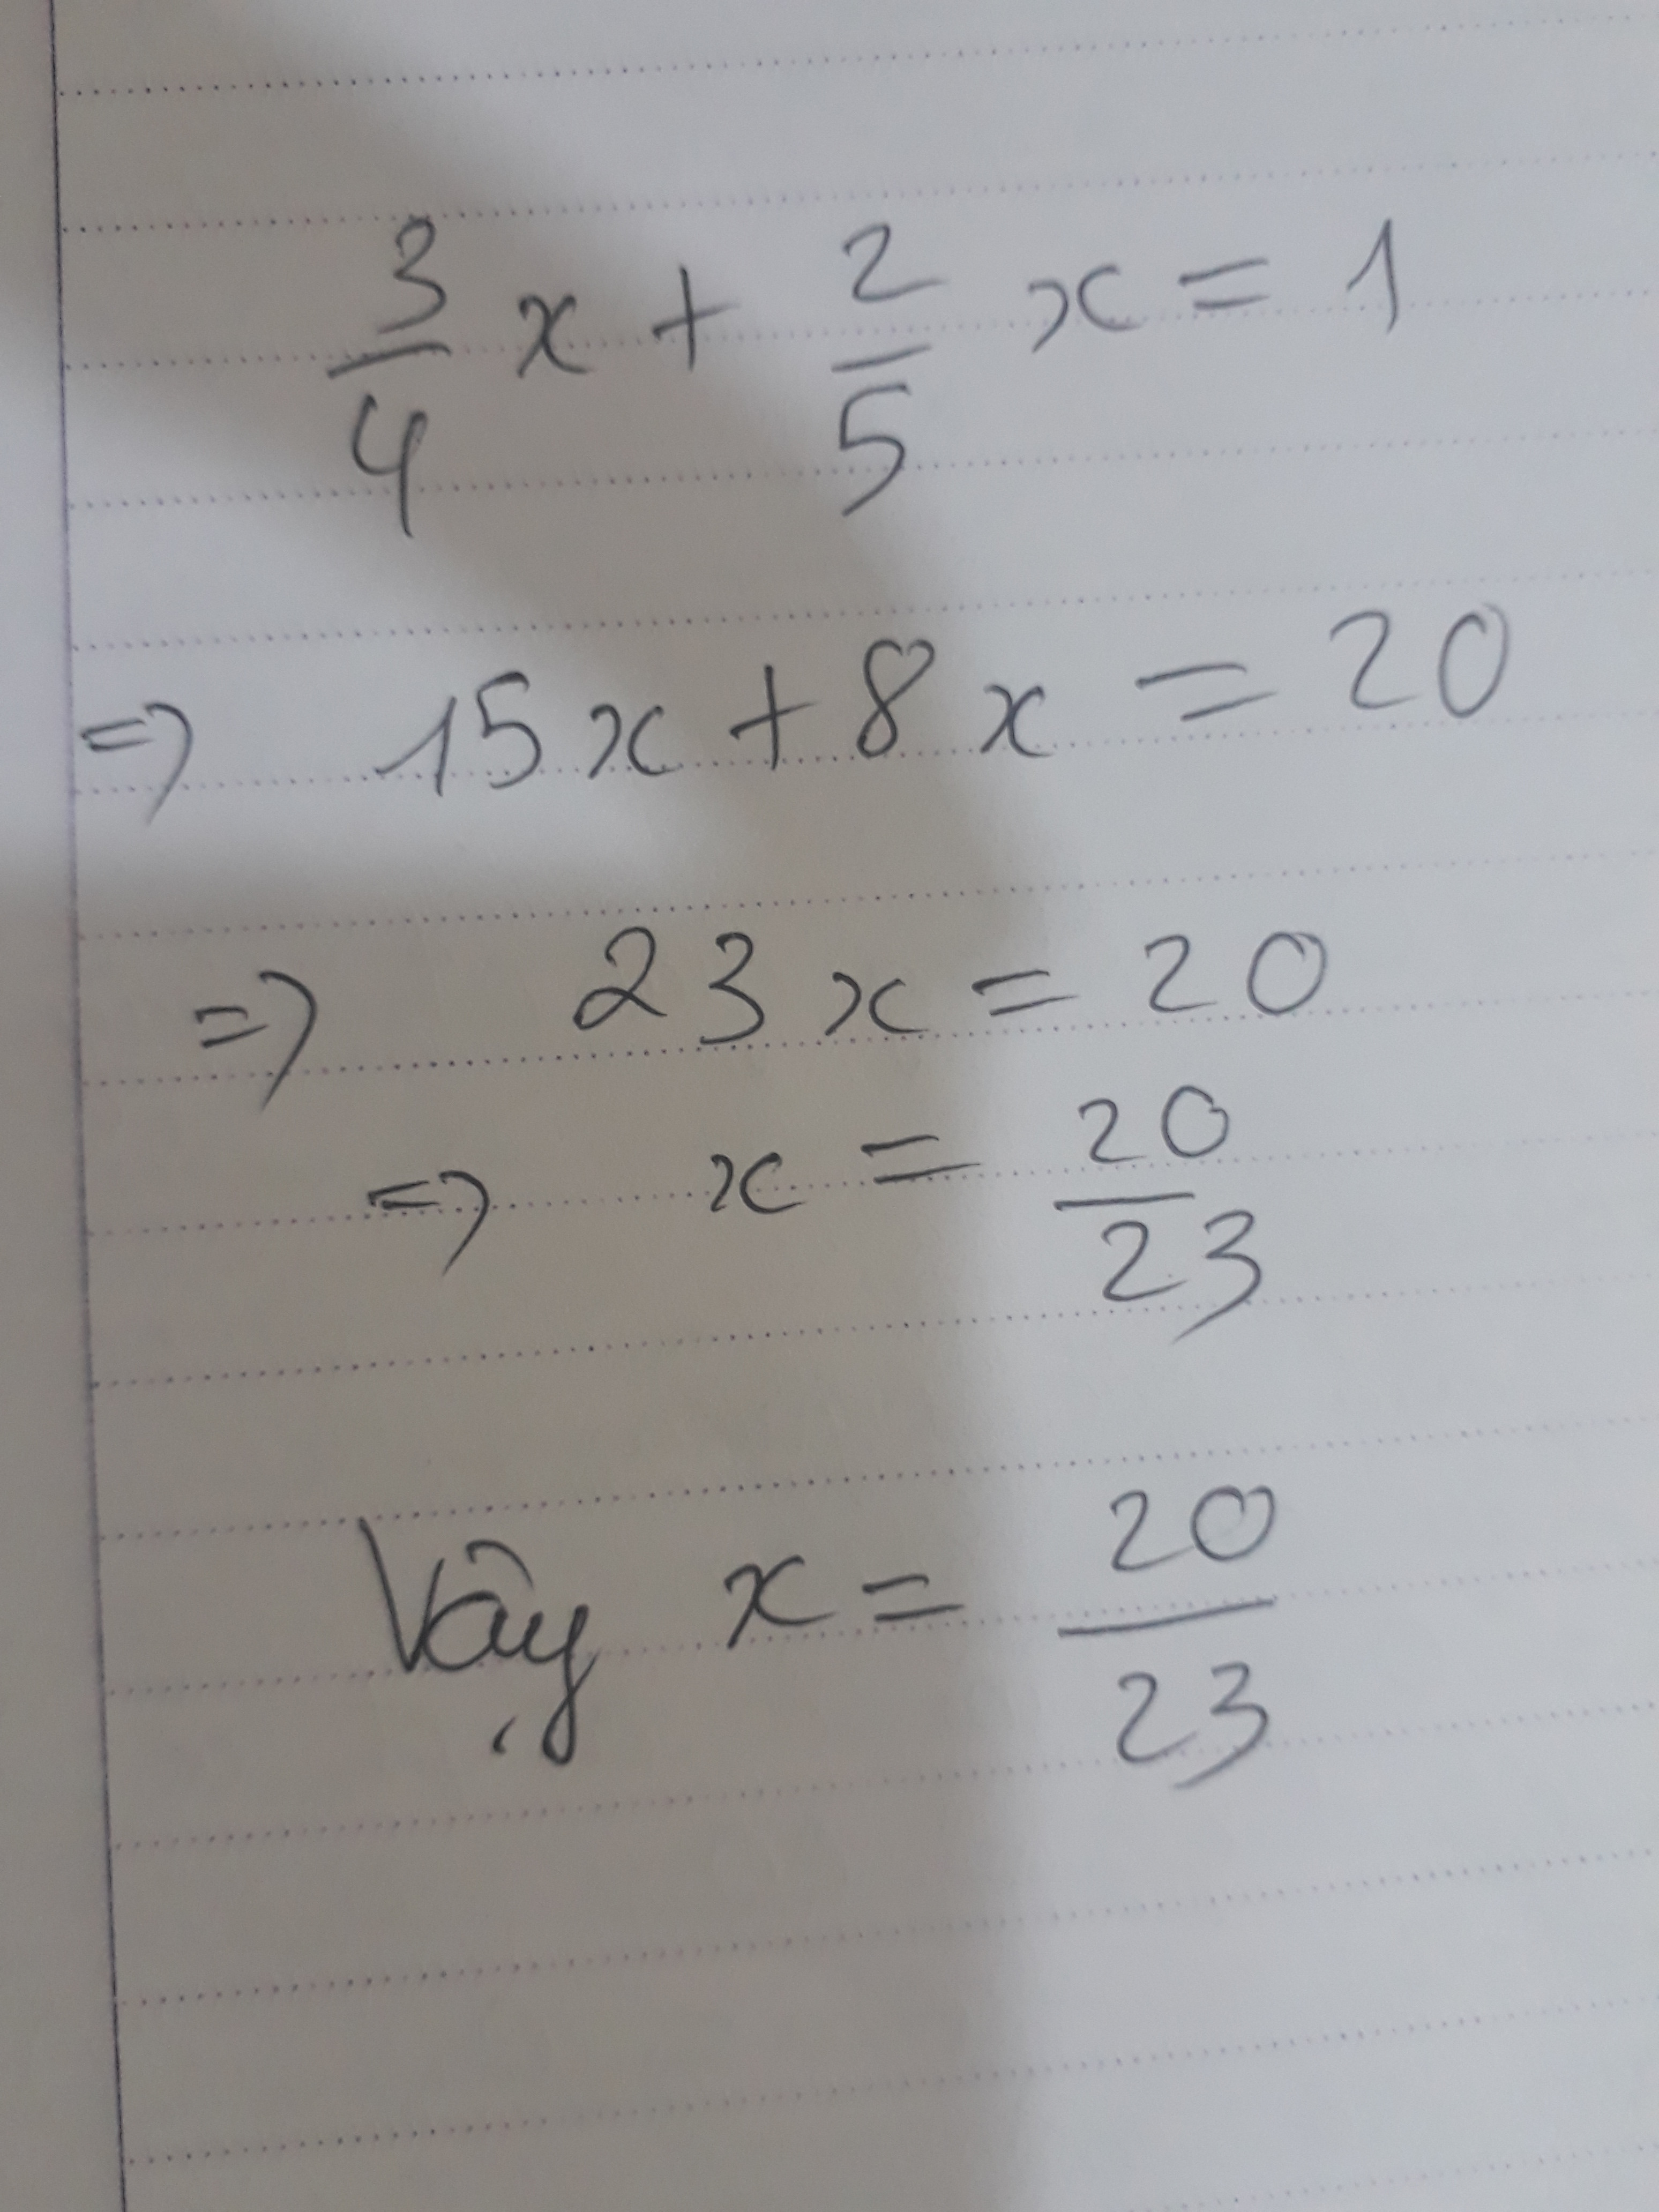 3/4 x + 2/5 x = 1
=> 15x + 8x = 20
=> 23x = 20
=> x = 20/23
Vậy x = 20/23